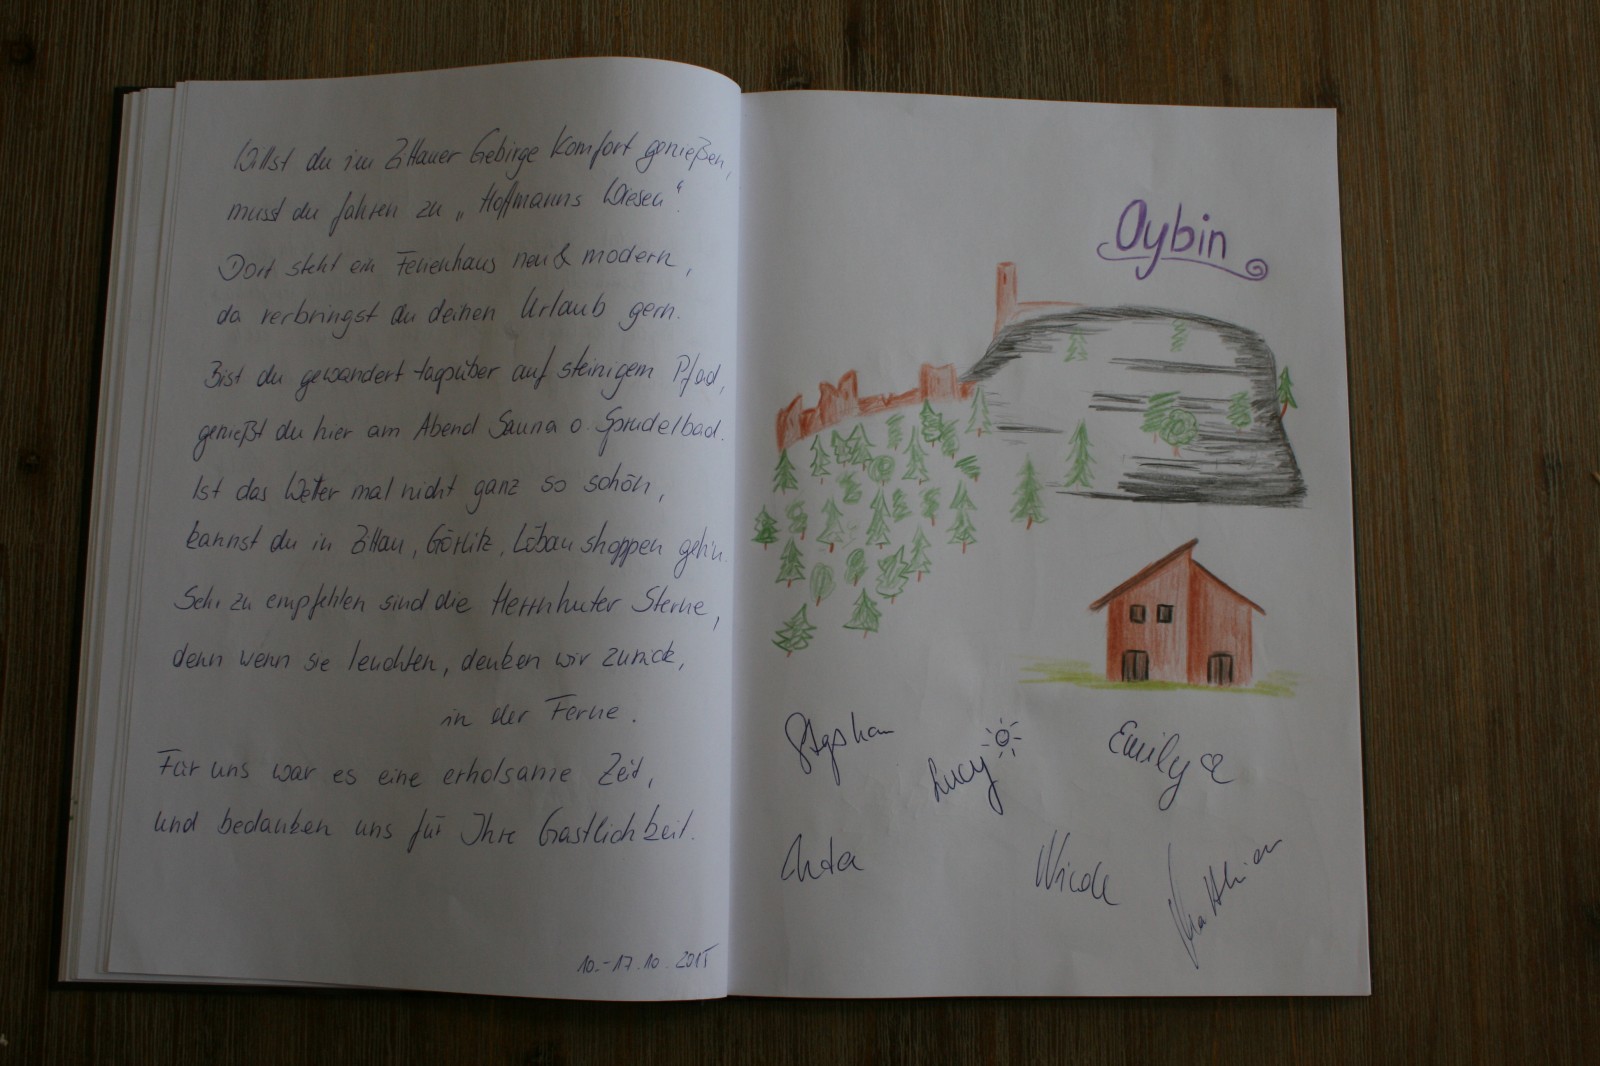 Willst du im Zittauer Gebirge Komfort genießen,
musst du fahren zu „Hoffmanns Wiesen“.
Dort steht ein Ferienhaus neu & modern,
da verbringst du deinen Urlaub gern.
Bist du gewandert tagsüber auf steinigem Pfad,
genießt du hier am Abend Sauna o. Sprudelbad.
Ist das Wetter mal nicht ganz so schön,
kannst du in Zittau, Görlitz, Löbau shoppen geh'n.
Sehr zu empfehlen sind die Herrnhuter Sterne,
denn wenn sie leuchten, denken wir zurück,
in der Ferne.
Für uns war es eine erholsame Zeit,
und bedanken uns für Ihre Gastlichkeit.
10.-17.10.2015
Oybin
Stephan
Lucy
Emily
Nicole
Matthias